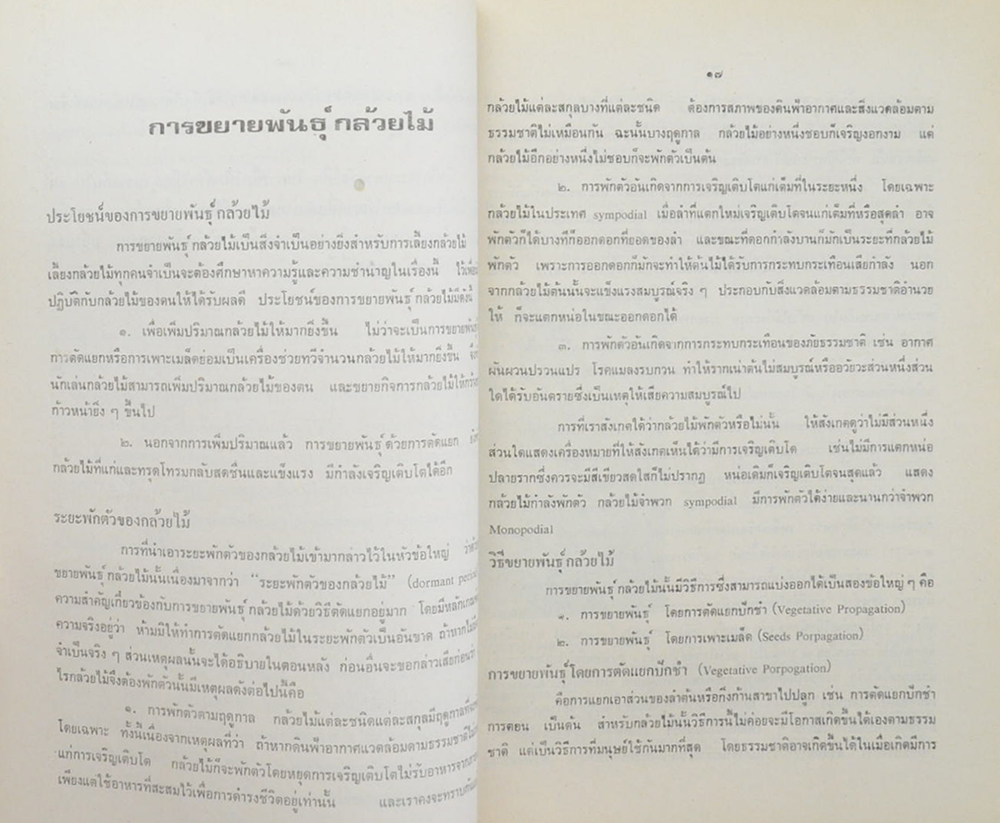 การขยายพันธุ์ กล้วยไม้
ประโยชน์ของการขยายพันธุ์ กล้วยไม้
การขยายพันธุ์ กล้วยไม้เป็นสิ่งจำเป็นอย่างยิ่งสำหรับการเลี้ยงกล้วยไม้
เลี้ยงกล้วยไม้ทุกคนจำเป็นจะต้องศึกษาหาความรู้และความชำนาญในเรื่องนี้ ไว้เพื่อ
ปฏิบัติกับกล้วยไม้ของตนให้ได้รับผลดี ประโยชน์ของการขยายพันธุ์ กล้วยไม้มีดังนี้
๑. เพื่อเพิ่มปริมาณกล้วยไม้ให้มากยิ่งขึ้น ไม่ว่าจะเป็นการขยายพันธุ์
การตัดแยกหรือการเพาะเมล็ดย่อมเป็นเครื่องช่วยทวีจำนวนกล้วยไม้ให้มากยิ่งขึ้น
นักเล่นกล้วยไม้สามารถเพิ่มปริมาณกล้วยไม้ของตน และขยายกิจการกล้วยไม้ให้
ก้าวหน้ายิ่ง ๆ ขึ้นไป
๒. นอกจากการเพิ่มปริมาณแล้ว การขยายพันธุ์ ด้วยการตัดแยก
กล้วยไม้ที่แก่และทรุดโทรมกลับสดชื่นและแข็งแรง มีกำลังเจริญเติบโตได้อีก
ระยะพักตัวของกล้วยไม้
การที่นำเอาระยะพักตัวของกล้วยไม้เข้ามากล่าวไว้ในหัวข้อใหญ่
ขยายพันธุ์ กล้วยไม้นั้นเนื่องมาจากว่า “ระยะพักตัวของกล้วยไม้” (dormant
ความสำคัญเกี่ยวข้องกับการขยายพันธุ์ กล้วยไม้ด้วยวิธีตัดแยกอยู่มาก โดยมีหลัก
ความจริงอยู่ว่า ห้ามมิให้ทำการตัดแยกกล้วยไม้ในระยะพักตัวเป็นอันขาด ถ้าหาก
จำเป็นจริง ๆ ส่วนเหตุผลนั้นจะได้อธิบายในตอนหลัง ก่อนอื่นจะขอกล่าวเสียก่อน
ไรกล้วยไม้จึงต้องพักตัวนั้นมีเหตุผลดังต่อไปนี้คือ
๑. การพักตัวตามฤดูกาล กล้วยไม้แต่ละชนิดแต่ละสกุลมีฤดูกาล
โดยเฉพาะ ทั้งนี้เนื่องจากเหตุผลที่ว่า ถ้าหากดินฟ้าอากาศแวดล้อมตามธรรมชาติ
แก่การเจริญเติบโต กล้วยไม้ก็จะพักตัวโดยหยุดการเจริญเติบโตไม่รับอาหารจาก
เพียงแต่ใช้อาหารที่สะสมไว้เพื่อการดำรงชีวิตอยู่เท่านั้น และเราคงจะทราบ
๑๗
กล้วยไม้แต่ละสกุลบางที่แต่ละชนิด ต้องการสภาพของดินฟ้าอากาศและสิ่งแวดล้อมตาม
ธรรมชาติไม่เหมือนกัน ฉะนั้นบางฤดูกาล กล้วยไม้อย่างหนึ่งชอบก็เจริญงอกงาม แต่
กล้วยไม้อีกอย่างหนึ่งไม่ชอบก็จะพักตัวเป็นต้น
๒. การพักตัวอันเกิดจากการเจริญเติบโตแก่เต็มที่ในระยะหนึ่ง โดยเฉพาะ
กล้วยไม้ในประเภท sympodial เมื่อลำที่แตกใหม่เจริญเติบโตจนแก่เต็มที่หรือสุดลำ อาจ
พักตัวก็ได้บางทีก็ออกดอกที่ยอดของลำ และขณะที่ดอกกำลังบานก็มักเป็นระยะที่กล้วยไม้
พักตัว เพราะการออกดอกก็มักจะทำให้ต้นไม้ได้รับการกระทบกระเทือนเสียกำลัง นอก
จากกล้วยไม้ต้นนั้นจะแข็งแรงสมบูรณ์จริง ๆ ประกอบกับสิ่งแวดล้อมตามธรรมชาติอำนวย
ให้ ก็จะแตกหน่อในขณะออกดอกได้
๓. การพักตัวอันเกิดจากการกระทบกระเทือนของภัยธรรมชาติ เช่น อากาศ
ผันผวนปรวนแปร โรคแมลงรบกวน ทำให้รากเน่าต้นไม่สมบูรณ์หรืออวัยวะส่วนหนึ่งส่วน
ใดได้รับอันตรายซึ่งเป็นเหตุให้เสียความสมบูรณ์ไป
การที่เราสังเกตได้ว่ากล้วยไม้พักตัวหรือไม่นั้น ให้สังเกตดูว่าไม่มีส่วนหนึ่ง
ส่วนใดแสดงเครื่องหมายที่ให้สังเกตเห็นได้ว่ามีการเจริญเติบโต เช่นไม่มีการแตกหน่อ
ปลายรากซึ่งควรจะมีสีเขียวสดใสก็ไม่ปรากฏ หน่อเดิมก็เจริญเติบโตจนสุดแล้ว แสดง
กล้วยไม้กำลังพักตัว กล้วยไม้จำพวก sympodial มีการพักตัวได้ง่ายและนานกว่าจำพวก
Monopodial
วิธีขยายพันธุ์ กล้วยไม้
การขยายพันธุ์ กล้วยไม้นั้นมีวิธีการซึ่งสามารถแบ่งออกได้เป็นสองข้อใหญ่ ๆ คือ
๑. การขยายพันธุ์ โดยการตัดแยกปักชำ (Vegetative Propagation)
๒. การขยายพันธุ์ โดยการเพาะเมล็ด (Seeds Porpagation)
การขยายพันธุ์ โดยการตัดแยกปักชำ (Vegetative Porpogation)
คือการแยกเอาส่วนของลำต้นหรือกิ่งก้านสาขาไปปลูก เช่น การตัดแยกปักชำ
การตอน เป็นต้น สำหรับกล้วยไม้นั้นวิธีการนี้ไม่ค่อยจะมีโอกาสเกิดขึ้นได้เองตามธรรม
ชาติ แต่เป็นวิธีการที่มนุษย์ใช้กันมากที่สุด โดยธรรมชาติอาจเกิดขึ้นได้ในเมื่อเกิดมีการ